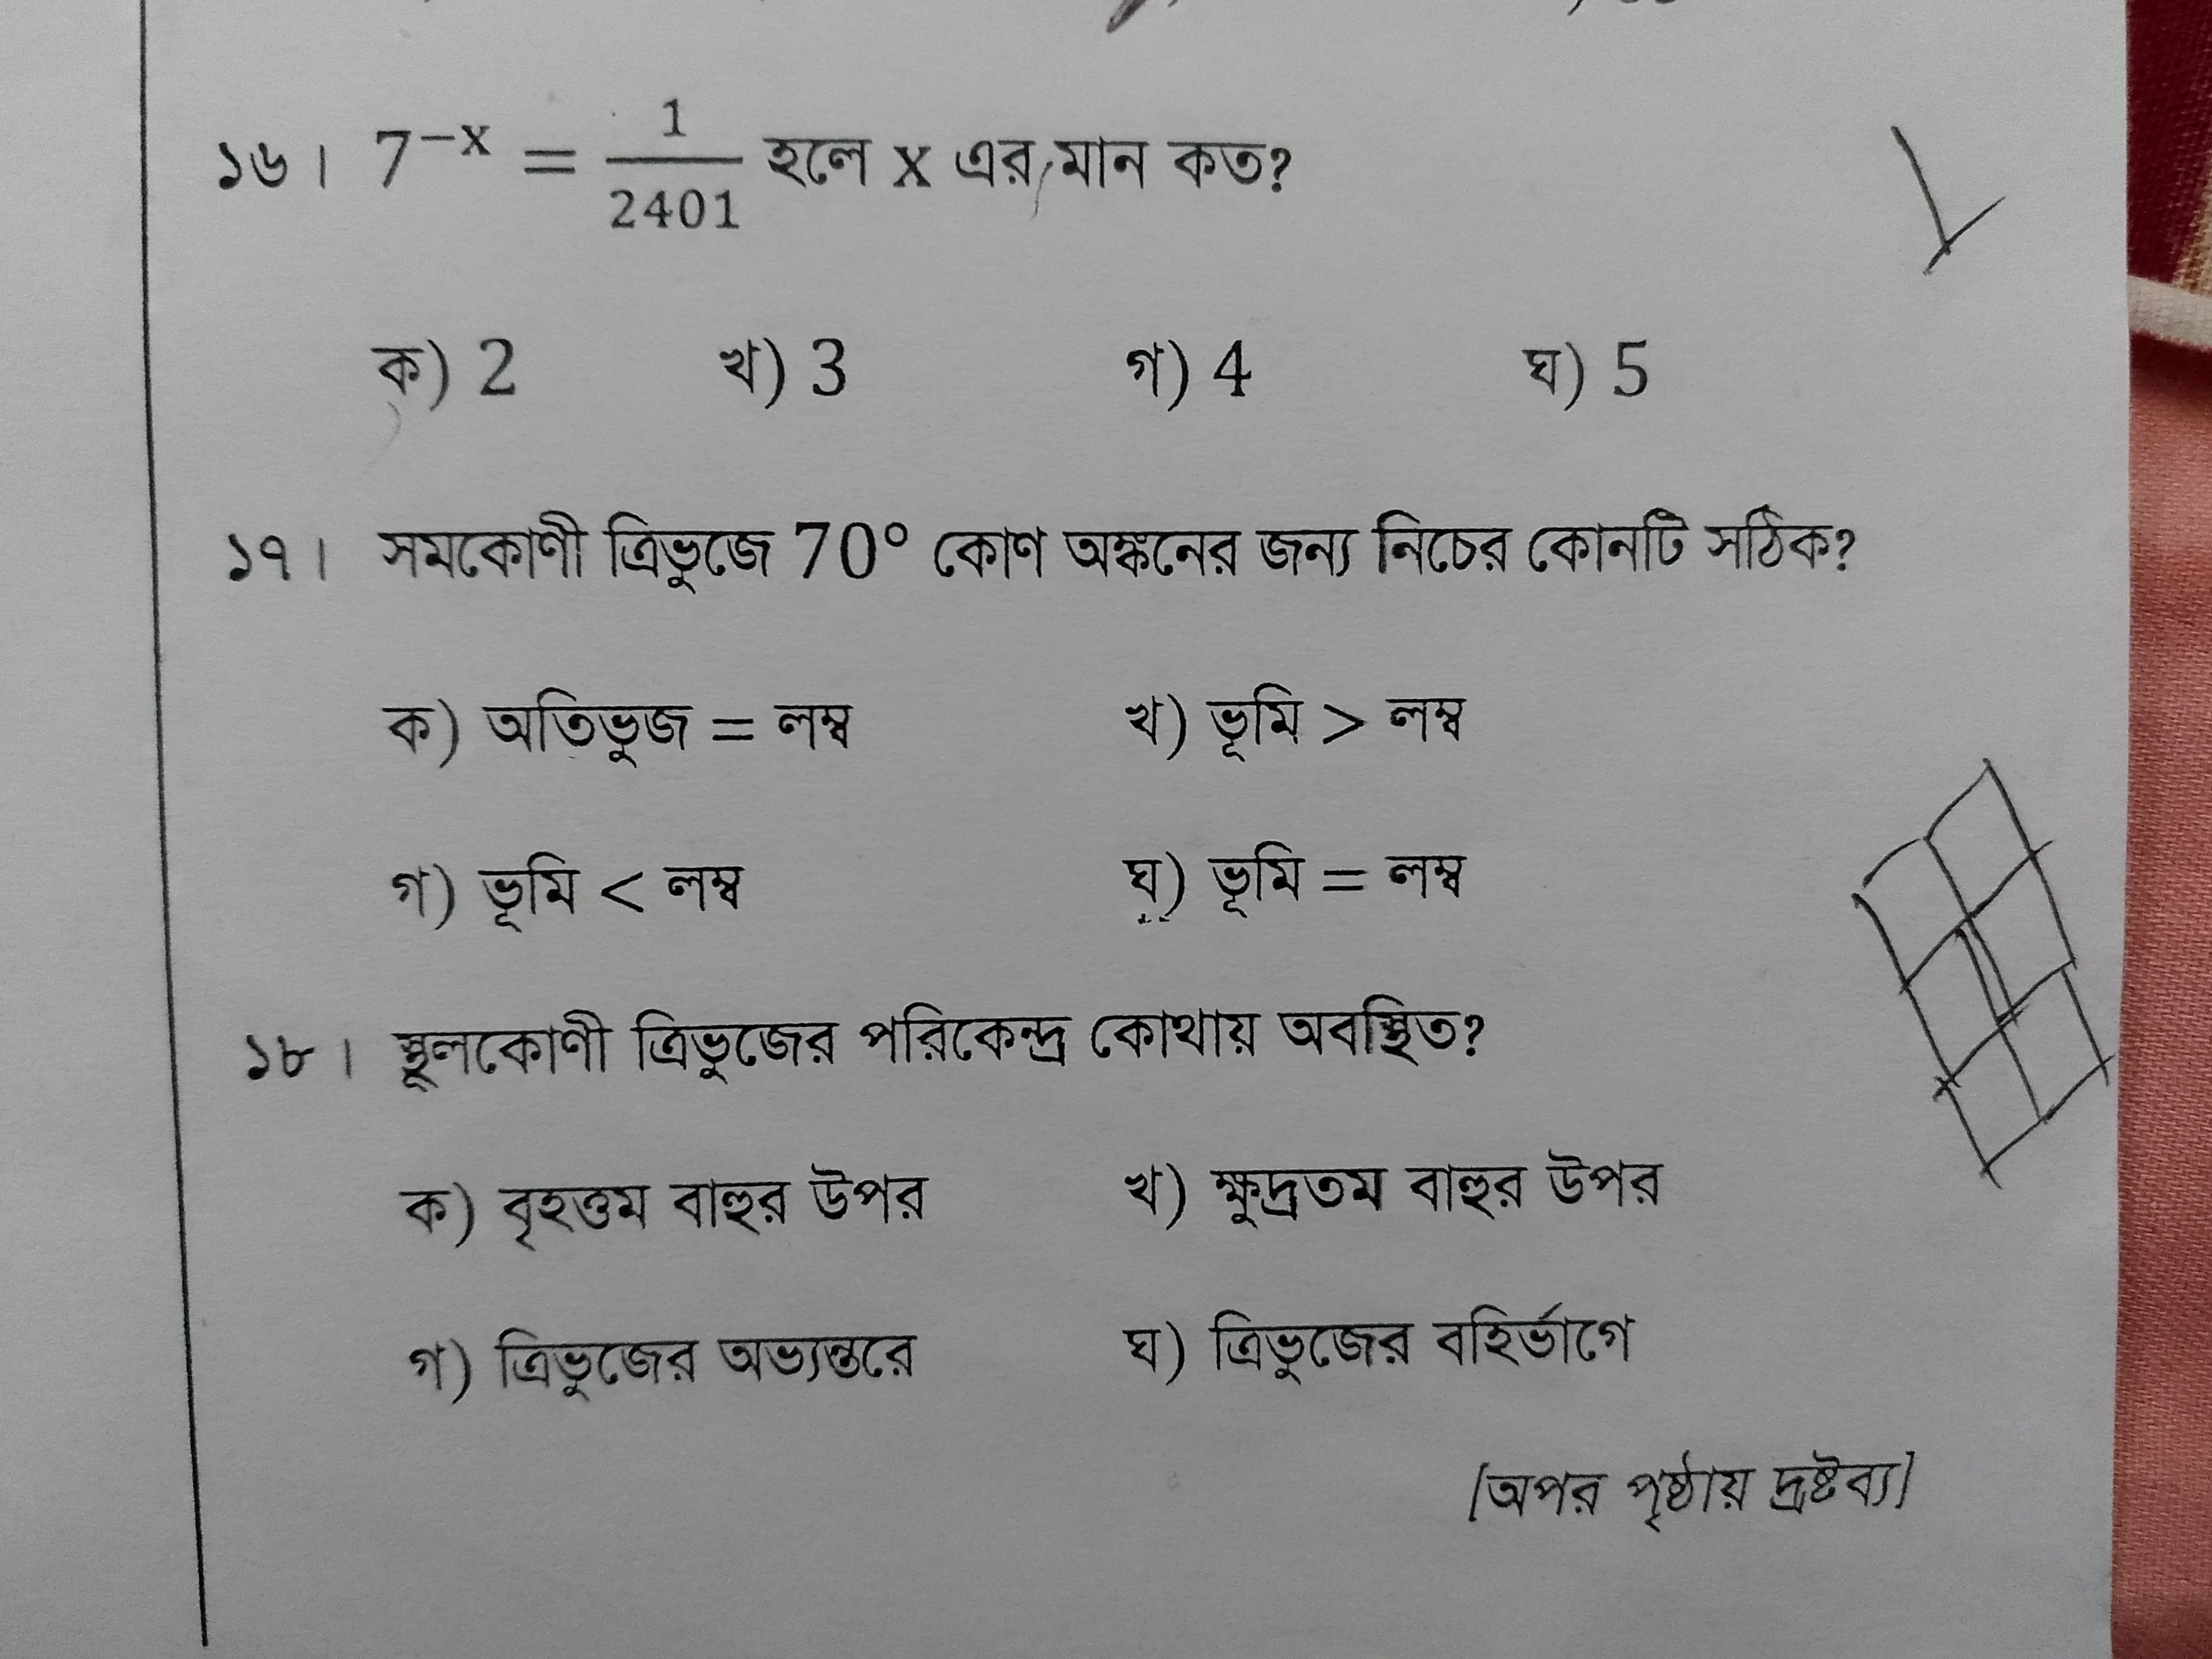 ১৬। 7^{-x} = \frac{1}{2401} হলে x এর মান কত?
ক) 2 খ) 3 গ) 4 ঘ) 5
১৭। সমকোণী ত্রিভুজে 70° কোণ অঙ্কনের জন্য নিচের কোনটি সঠিক?
ক) অতিভুজ = লম্ব খ) ভূমি > লম্ব
গ) ভূমি < লম্ব ঘ) ভূমি = লম্ব
১৮। স্থূলকোণী ত্রিভুজের পরিকেন্দ্র কোথায় অবস্থিত?
ক) বৃহত্তম বাহুর উপর খ) ক্ষুদ্রতম বাহুর উপর
গ) ত্রিভুজের অভ্যন্তরে ঘ) ত্রিভুজের বহির্ভাগে
[অপর পৃষ্ঠায় দ্রষ্টব্য]